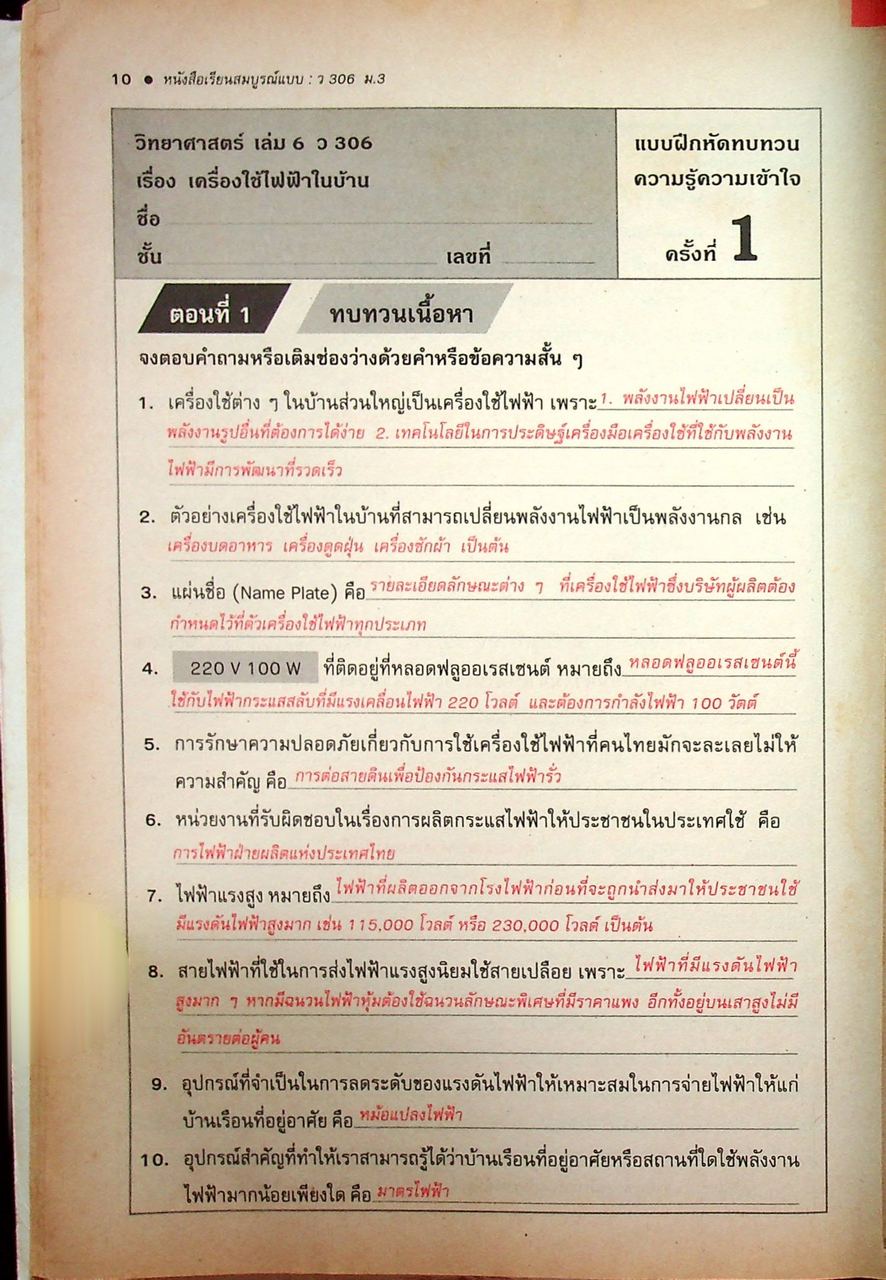 10 ● หนังสือเรียนสมบูรณ์แบบ : ว 306 ม.3
วิทยาศาสตร์ เล่ม 6 ว 306
เรื่อง เครื่องใช้ไฟฟ้าในบ้าน
ชื่อ
ชั้น เลขที่
แบบฝึกหัดทบทวน
ความรู้ความเข้าใจ
ครั้งที่ 1
ตอนที่ 1 ทบทวนเนื้อหา
จงตอบคำถามหรือเติมช่องว่างด้วยคำหรือข้อความสั้น ๆ
1. เครื่องใช้ต่าง ๆ ในบ้านส่วนใหญ่เป็นเครื่องใช้ไฟฟ้า เพราะ 1. พลังงานไฟฟ้าเปลี่ยนเป็น
พลังงานรูปอื่นที่ต้องการได้ง่าย 2. เทคโนโลยีในการประดิษฐ์เครื่องมือเครื่องใช้ที่ใช้กับพลังงาน
ไฟฟ้ามีการพัฒนาที่รวดเร็ว
2. ตัวอย่างเครื่องใช้ไฟฟ้าในบ้านที่สามารถเปลี่ยนพลังงานไฟฟ้าเป็นพลังงานกล เช่น
เครื่องบดอาหาร เครื่องดูดฝุ่น เครื่องซักผ้า เป็นต้น
3. แผ่นชื่อ (Name Plate) คือ รายละเอียดลักษณะต่าง ๆ ที่เครื่องใช้ไฟฟ้าซึ่งบริษัทผู้ผลิตต้อง
กำหนดไว้ที่ตัวเครื่องใช้ไฟฟ้าทุกประเภท
4. 220 V 100 W ที่ติดอยู่ที่หลอดฟลูออเรสเซนต์ หมายถึง หลอดฟลูออเรสเซนต์นี้
ใช้กับไฟฟ้ากระแสสลับที่มีแรงเคลื่อนไฟฟ้า 220 โวลต์ และต้องการกำลังไฟฟ้า 100 วัตต์
5. การรักษาความปลอดภัยเกี่ยวกับการใช้เครื่องใช้ไฟฟ้าที่คนไทยมักจะละเลยไม่ให้
ความสำคัญ คือ การต่อสายดินเพื่อป้องกันกระแสไฟฟ้ารั่ว
6. หน่วยงานที่รับผิดชอบในเรื่องการผลิตกระแสไฟฟ้าให้ประชาชนในประเทศใช้ คือ
การไฟฟ้าฝ่ายผลิตแห่งประเทศไทย
7. ไฟฟ้าแรงสูง หมายถึง ไฟฟ้าที่ผลิตออกจากโรงไฟฟ้าก่อนที่จะถูกนำส่งมาให้ประชาชนใช้
มีแรงดันไฟฟ้าสูงมาก เช่น 115,000 โวลต์ หรือ 230,000 โวลต์ เป็นต้น
8. สายไฟฟ้าที่ใช้ในการส่งไฟฟ้าแรงสูงนิยมใช้สายเปลือย เพราะ ไฟฟ้าที่มีแรงดันไฟฟ้า
สูงมาก ๆ หากมีฉนวนไฟฟ้าหุ้มต้องใช้ฉนวนลักษณะพิเศษที่มีราคาแพง อีกทั้งอยู่บนเสาสูงไม่มี
อันตรายต่อผู้คน
9. อุปกรณ์ที่จำเป็นในการลดระดับของแรงดันไฟฟ้าให้เหมาะสมในการจ่ายไฟฟ้าให้แก่
บ้านเรือนที่อยู่อาศัย คือ หม้อแปลงไฟฟ้า
10. อุปกรณ์สำคัญที่ทำให้เราสามารถรู้ได้ว่าบ้านเรือนที่อยู่อาศัยหรือสถานที่ใดใช้พลังงาน
ไฟฟ้ามากน้อยเพียงใด คือ มาตรไฟฟ้า